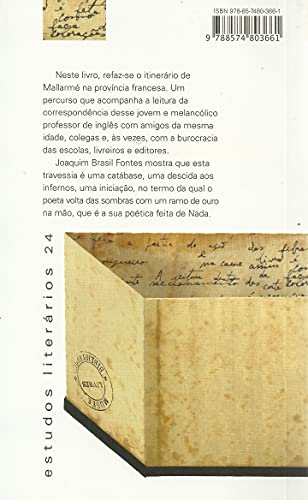 ISBN 978-85-7480-366-1
9 788574 803661
Neste livro, refaz-se o itinerário de
Mallarmé na província francesa. Um
percurso que acompanha a leitura da
correspondência desse jovem e melancólico
professor de inglês com amigos da mesma
idade, colegas e, às vezes, com a burocracia
das escolas, livreiros e editores.
Joaquim Brasil Fontes mostra que esta
travessia é uma catábase, uma descida aos
infernos, uma iniciação, no termo da qual o
poeta volta das sombras com um ramo de ouro
na mão, que é a sua poética feita de Nada.
estudos literários 24
LIVRES